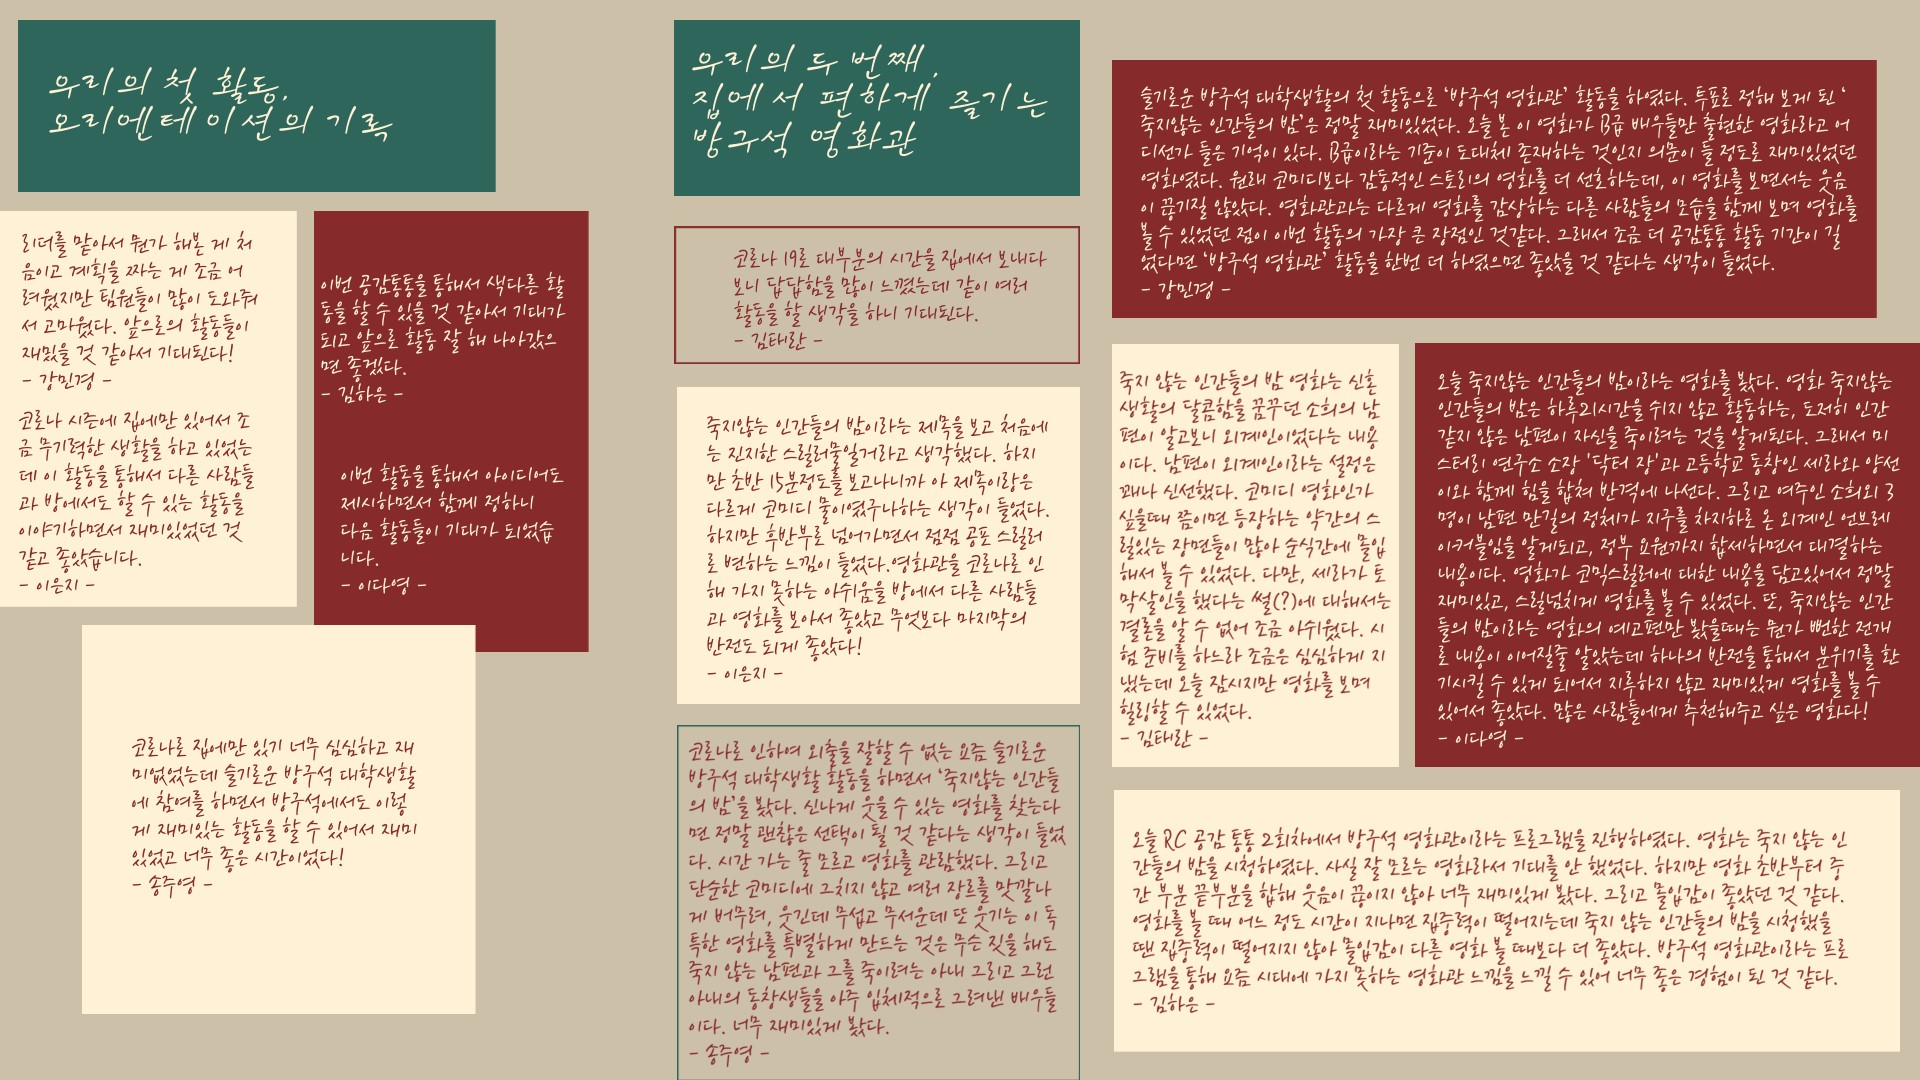 우리의 첫 활동,
오리엔테이션의 기록
리더를 맡아서 뭔가 해본 게 처
음이고 계획을 짜는 게 조금 어
려웠지만 팀원들이 많이 도와줘
서 고마웠다. 앞으로의 활동들이
재밌을 것 같아서 기대된다!
- 강민경 -
코로나 시즌에 집에만 있어서 조
금 무기력한 생활을 하고 있었는
데 이 활동을 통해서 다른 사람들
과 방에서도 할 수 있는 활동을
이야기하면서 재미있었던 것
같고 좋았습니다.
- 이은지 -
이번 공감통통을 통해서 색다른 활
동을 할 수 있을 것 같아서 기대가
되고 앞으로 활동 잘 해 나아갔으
면 좋겠다.
- 김하은 -
이번 활동을 통해서 아이디어도
제시하면서 함께 정하니
다음 활동들이 기대가 되었습
니다.
- 이다영 -
코로나로 집에만 있기 너무 심심하고 재
미없었는데 슬기로운 방구석 대학생활
에 참여를 하면서 방구석에서도 이렇
게 재미있는 활동을 할 수 있어서 재미
있었고 너무 좋은 시간이었다!
- 송주영 -
우리의 두 번째,
집에서 편하게 즐기는
방구석 영화관
코로나 19로 대부분의 시간을 집에서 보내다
보니 답답함을 많이 느꼈는데 같이 여러
활동을 할 생각을 하니 기대된다.
- 김태란 -
죽지않는 인간들의 밤이라는 제목을 보고 처음에
는 진지한 스릴러물일거라고 생각했다. 하지
만 초반 15분정도를 보고나니까 아 제목이랑은
다르게 코미디 물이였구나하는 생각이 들었다.
하지만 후반부로 넘어가면서 점점 공포 스릴러
로 변하는 느낌이 들었다.영화관을 코로나로 인
해 가지 못하는 아쉬움을 방에서 다른 사람들
과 영화를 보아서 좋았고 무엇보다 마지막의
반전도 되게 좋았다!
- 이은지 -
코로나로 인하여 외출을 잘할 수 없는 요즘 슬기로운
방구석 대학생활 활동을 하면서 '죽지않는 인간들
의 밤'을 봤다. 신나게 웃을 수 있는 영화를 찾는다
면 정말 괜찮은 선택이 될 것 같다는 생각이 들었
다. 시간 가는 줄 모르고 영화를 관람했다. 그리고
단순한 코미디에 그치지 않고 여러 장르를 맛깔나
게 버무려, 웃긴데 무섭고 무서운데 또 웃기는 이 독
특한 영화를 특별하게 만드는 것은 무슨 짓을 해도
죽지 않는 남편과 그를 죽이려는 아내 그리고 그런
아내의 동창생들을 아주 입체적으로 그려낸 배우들
이다. 너무 재미있게 봤다.
- 송주영 -
슬기로운 방구석 대학생활의 첫 활동으로 '방구석 영화관' 활동을 하였다. 투표로 정해 보게 된 '
죽지않는 인간들의 밤'은 정말 재미있었다. 오늘 본 이 영화가 B급 배우들만 출현한 영화라고 어
디선가 들은 기억이 있다. B급이라는 기준이 도대체 존재하는 것인지 의문이 들 정도로 재미있었던
영화였다. 원래 코미디보다 감동적인 스토리의 영화를 더 선호하는데, 이 영화를 보면서는 웃음
이 끊기질 않았다. 영화관과는 다르게 영화를 감상하는 다른 사람들의 모습을 함께 보며 영화를
볼 수 있었던 점이 이번 활동의 가장 큰 장점인 것같다. 그래서 조금 더 공감통통 활동 기간이 길
었다면 '방구석 영화관' 활동을 한번 더 하였으면 좋았을 것 같다는 생각이 들었다.
- 강민경 -
죽지 않는 인간들의 밤 영화는 신혼
생활의 달콤함을 꿈꾸던 소희의 남
편이 알고보니 외계인이었다는 내용
이다. 남편이 외계인이라는 설정은
꽤나 신선했다. 코미디 영화인가
싶을때 쯤이면 등장하는 약간의 스
릴있는 장면들이 많아 순식간에 몰입
해서 볼 수 있었다. 다만, 세라가 토
막살인을 했다는 썰(?)에 대해서는
결론을 알 수 없어 조금 아쉬웠다. 시
험 준비를 하느라 조금은 심심하게 지
냈는데 오늘 잠시지만 영화를 보며
힐링할 수 있었다.
- 김태란 -
오늘 죽지않는 인간들의 밤이라는 영화를 봤다. 영화 죽지않는
인간들의 밤은 하루21시간을 쉬지 않고 활동하는, 도저히 인간
같지 않은 남편이 자신을 죽이려는 것을 알게된다. 그래서 미
스터리 연구소 소장 '닥터 장'과 고등학교 동창인 세라와 양선
이와 함께 힘을 합쳐 반격에 나선다. 그리고 여주인 소희외 3
명이 남편 만길의 정체가 지구를 차지하로 온 외계인 언브레
이커블임을 알게되고, 정부 요원까지 합세하면서 대결하는
내용이다. 영화가 코믹스릴러에 대한 내용을 담고있어서 정말
재미있고, 스릴넘치게 영화를 볼 수 있었다. 또, 죽지않는 인간
들의 밤이라는 영화의 예고편만 봤을때는 뭔가 뻔한 전개
로 내용이 이어질줄 알았는데 하나의 반전을 통해서 분위기를 환
기시킬 수 있게 되어서 지루하지 않고 재미있게 영화를 볼 수
있어서 좋았다. 많은 사람들에게 추천해주고 싶은 영화다!
- 이다영 -
오늘 RC 공감 통통 2회차에서 방구석 영화관이라는 프로그램을 진행하였다. 영화는 죽지 않는 인
간들의 밤을 시청하였다. 사실 잘 모르는 영화라서 기대를 안 했었다. 하지만 영화 초반부터 중
간 부분 끝부분을 합해 웃음이 끊이지 않아 너무 재미있게 봤다. 그리고 몰입감이 좋았던 것 같다.
영화를 볼 때 어느 정도 시간이 지나면 집중력이 떨어지는데 죽지 않는 인간들의 밤을 시청했을
땐 집중력이 떨어지지 않아 몰입감이 다른 영화 볼 때보다 더 좋았다. 방구석 영화관이라는 프로
그램을 통해 요즘 시대에 가지 못하는 영화관 느낌을 느낄 수 있어 너무 좋은 경험이 된 것 같다.
- 김하은 -